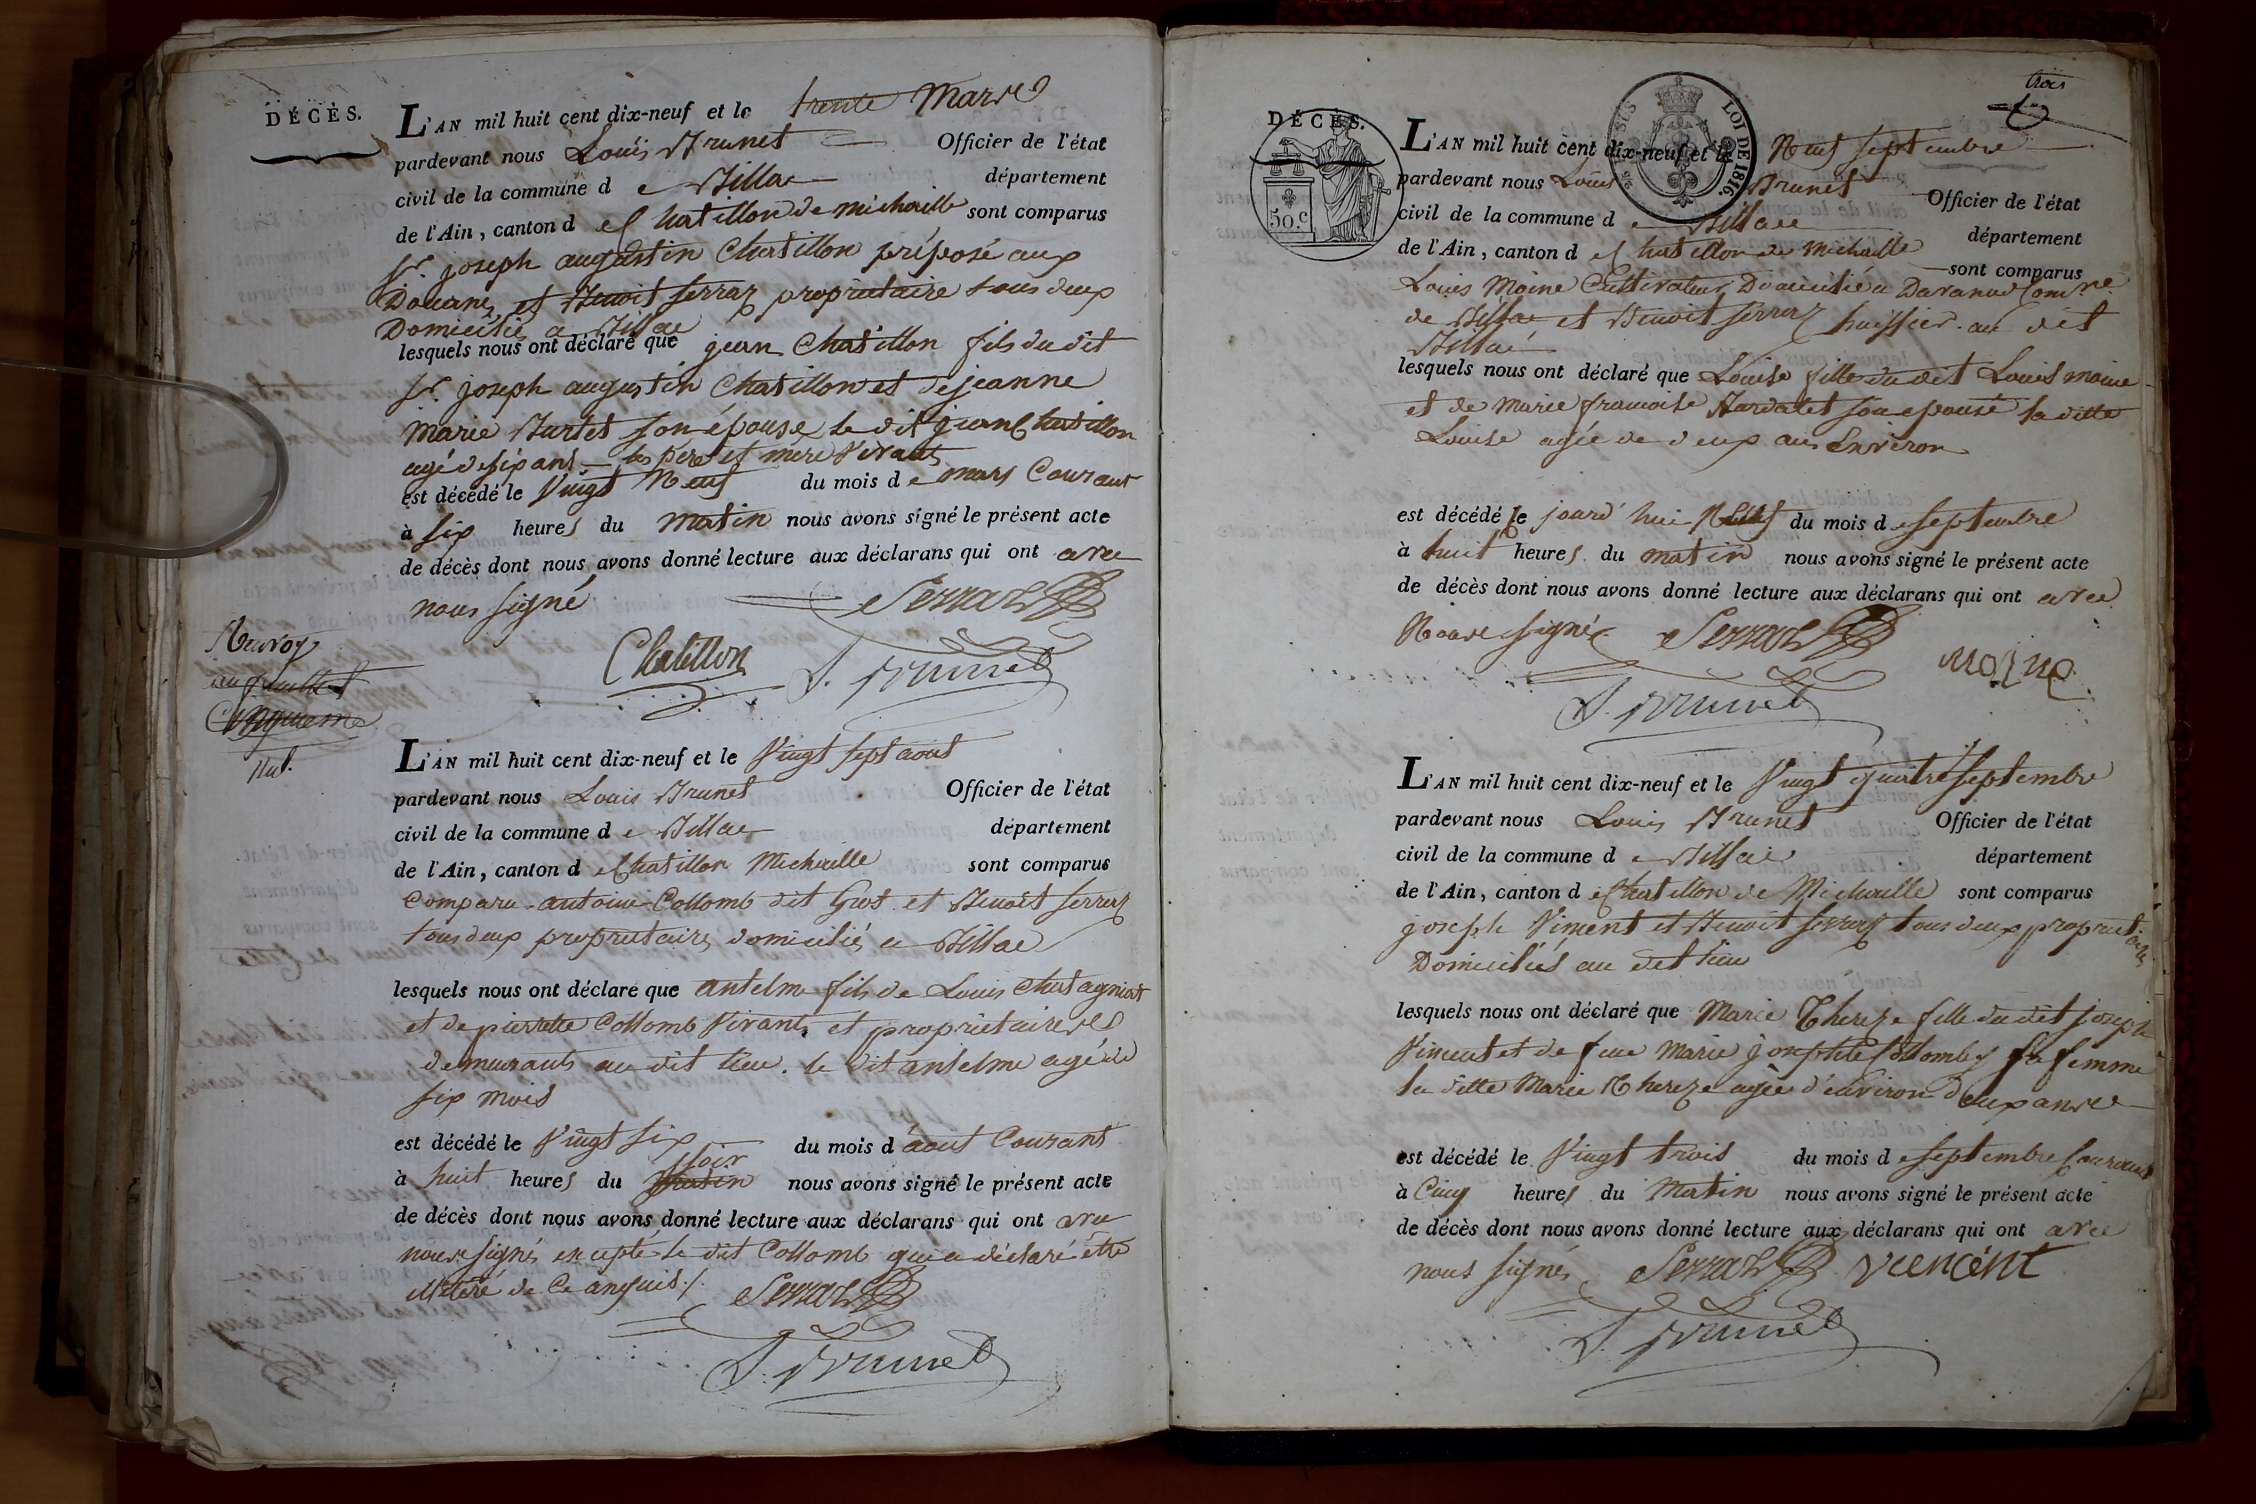 DÉCÈS.
L'AN mil huit cent dix-neuf et le trente Mars
pardevant nous Louis Brunet Officier de l'état
civil de la commune d e Billia département
de l'Ain, canton d e Chatillon de michaille sont comparus
Sr. joseph augustin Chatillon préposé aux
Douanes et Benoit ferraz proprietaire tous deux
Domiciliés a Billia
lesquels nous ont déclaré que jean Chatillon fils du dit
Sr. joseph augustin Chatillon et de jeanne
Marie Burlet son épouse le dit jean Chatillon
agé de six ans les père et mère Vivants
est décédé le Vingt Neuf du mois d e mars Courant
à six heures du matin nous avons signé le présent acte
de décès dont nous avons donné lecture aux déclarans qui ont avec
nous signé Serraz
Chatillon L. Brunet
Renvoy
au feuillet
Cinquieme
Nul.
L'AN mil huit cent dix-neuf et le Vingt sept aout
pardevant nous Louis Brunet Officier de l'état
civil de la commune d e Billia département
de l'Ain, canton d e Chatillon Michaille sont comparus
Comparu antoine Collomb dit Grot et Benoit ferraz
tous deux proprietaires domiciliés a Billia
lesquels nous ont déclaré que antelme fils de Louis Chatagniat
et de pierrette Collomb Vivants et proprietaires
demeurants au dit lieu. le dit antelme agé de
six mois
est décédé le Vingt six du mois d aout Courant
soir
à huit heures du matin nous avons signé le présent acte
de décès dont nous avons donné lecture aux déclarans qui ont avec
nous signés excepté le dit Collomb qui a déclaré être
illiteré de ce anquis./. Serraz
L. Brunet
trois
DÉCÈS.
50.c
SIS LOI DE 1816.
L'AN mil huit cent dix-neuf et le Neuf septembre
pardevant nous Louis Brunet Officier de l'état
civil de la commune d e Billia département
de l'Ain, canton d e Chatillon de Michaille sont comparus
Louis Moine Cultivateur Domicilié a Davanod Comne
de Billia et Benoit ferraz huissier au dit
Billia
lesquels nous ont déclaré que Louise fille du dit Louis moine
et de marie francoise Bardalet son epouse la ditte
Louise agée de deux ans Environ
est décédé le jourd'hui Neuf du mois d e septembre
à huit heures du matin nous avons signé le présent acte
de décès dont nous avons donné lecture aux déclarans qui ont avec
Nous signé Serraz moine
L. Brunet
L'AN mil huit cent dix-neuf et le Vingt quatre septembre
pardevant nous Louis Brunet Officier de l'état
civil de la commune d e Billia département
de l'Ain, canton d e Chatillon de Michaille sont comparus
joseph Vincent et Benoit ferraz tous deux proprietaires
Domiciliés au dit lieu
lesquels nous ont déclaré que Marie Thereze fille du dit joseph
Vincent et de feue Marie josephte Collomb sa femme
la ditte Marie Thereze agée d'environ deux ans
est décédé le Vingt trois du mois d e septembre Courant
à Cinq heures du Matin nous avons signé le présent acte
de décès dont nous avons donné lecture aux déclarans qui ont avec
nous signés Serraz vuencent
L. Brunet